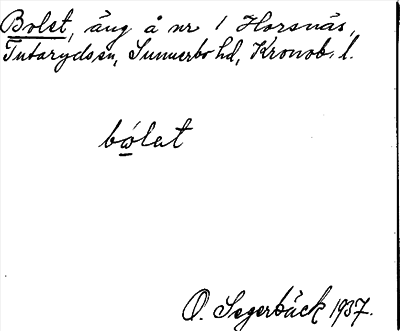 Bolet, äng å nr 1 Horsnäs,
Tutarydssn, Sunnerbo hd, Kronob. l.
bólat
O. Segerbäck 1937.